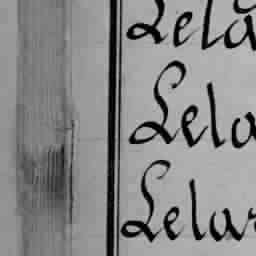 Lela
Lela
Lelar